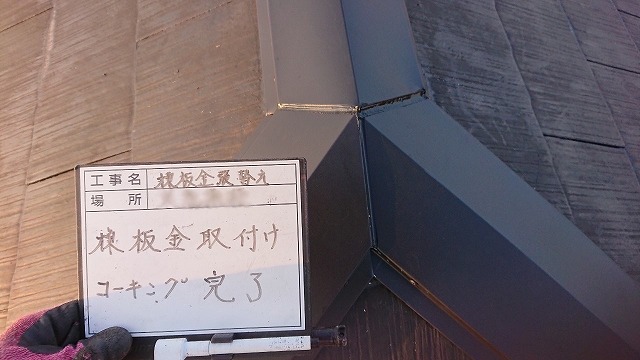 工事名 棟板金張替え
場所
棟板金取付け
コーキング完了